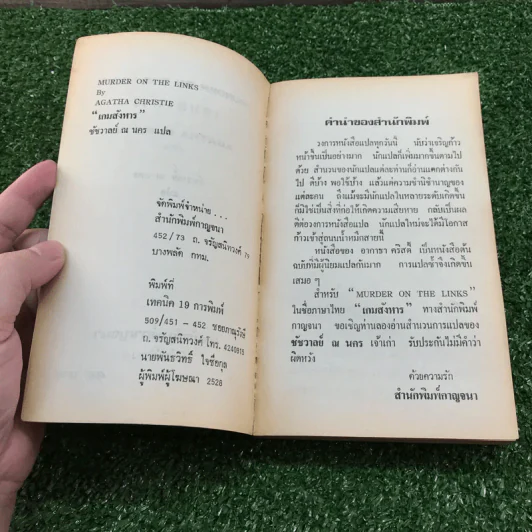 MURDER ON THE LINKS
By
AGATHA CHRISTIE
"เกมสังหาร"
ชัชวาลย์ ณ นคร แปล
จัดพิมพ์จำหน่าย . . .
สำนักพิมพ์กาญจนา
452/73 ถ. จรัญสนิทวงศ์ 79
บางพลัด กทม.
พิมพ์ที่
เทคนิค 19 การพิมพ์
509/451 - 452 ซอยภาณุรังษี
ถ. จรัญสนิทวงศ์ โทร. 4240915
นายพันธวิทธิ์ ใจซื่อกุล
ผู้พิมพ์ผู้โฆษณา 2528
คำนำของสำนักพิมพ์
วงการหนังสือแปลทุกวันนี้ นับว่าเจริญก้าว
หน้าขึ้นเป็นอย่างมาก นักแปลก็เพิ่มมากขึ้นตามไป
ด้วย สำนวนของนักแปลแต่ละท่านก็อ่านแตกต่างกัน
ไป ดีบ้าง พอใช้บ้าง แล้วแต่ความชำนิชำนาญของ
แต่ละคน ถึงแม้จะมีนักแปลในหลายระดับเกิดขึ้น
ก็มิใช่เป็นสิ่งที่ก่อให้เกิดความเสียหาย กลับเป็นผล
ดีต่อวงการหนังสือแปล นักแปลใหม่จะได้มีโอกาส
ก้าวเข้าสู่ถนนน้ำหมึกสายนี้
หนังสือของ อากาธา คริสตี้ เป็นหนังสือต้น
ฉบับที่มีผู้นิยมแปลกันมาก การแปลซ้ำจึงเกิดขึ้น
เสมอ ๆ
สำหรับ "MURDER ON THE LINKS"
ในชื่อภาษาไทย "เกมสังหาร" ทางสำนักพิมพ์
กาญจนา ขอเชิญท่านลองอ่านสำนวนการแปลของ
ชัชวาลย์ ณ นคร เจ้าเก่า รับประกันไม่มีคำว่า
ผิดหวัง
ด้วยความรัก
สำนักพิมพ์กาญจนา